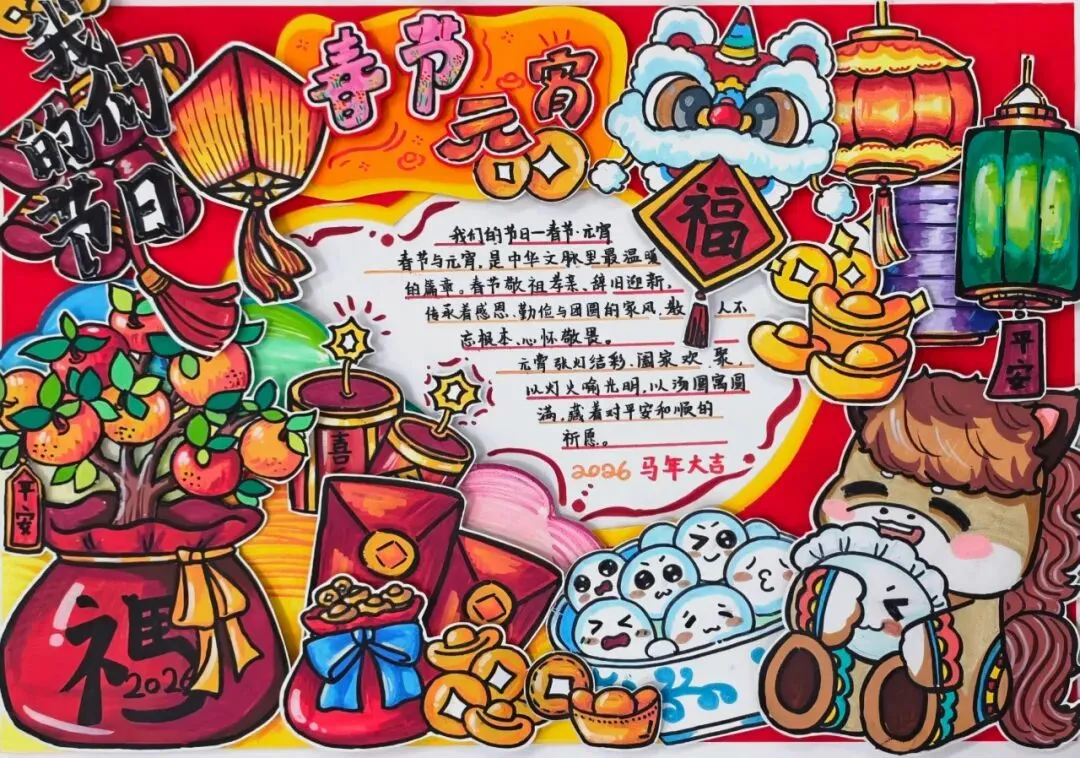 我们的节日
春节
元宵
福
我们的节日—春节·元宵
春节与元宵,是中华文脉里最温暖
的篇章。春节敬祖孝亲、辞旧迎新,
传承着感恩、勤俭与团圆的家风,教 人不
忘根本、心怀敬畏。
元宵张灯结彩、阖家欢聚,
以灯火喻光明,以汤圆寓圆
满,藏着对平安和顺的
祈愿。
2026 马年大吉
平安
喜
平安
2026